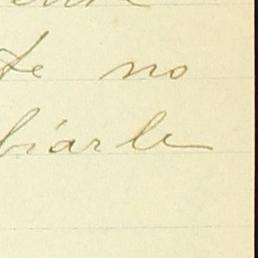 te no
biarle